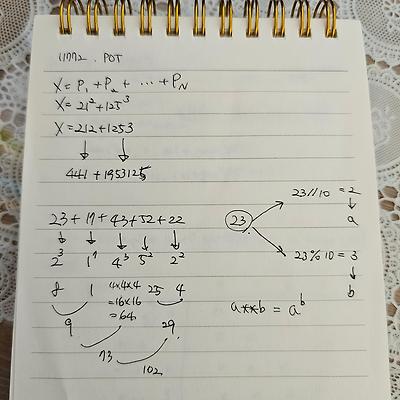 11772. POT
X = P₁ + P₂ + ... + P_N
X = 21² + 125³
X = 212 + 1253
441 + 1953125
23 + 17 + 43 + 52 + 22
2³ 1⁷ 4³ 5² 2²
8 1 4x4x4 25 4
= 16x16
= 64
9 29
73
102
23
23//10 = 2
a
23%10 = 3
b
a**b = a^b